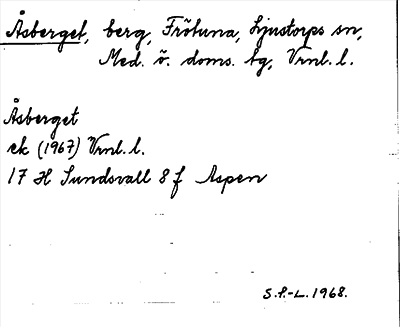 Åsberget, berg, Frötuna, Ljustorps sn,
Med. ö. doms. tg, Vrnl. l.
Åsberget
ek (1967) Vrnl. l.
17 H Sundsvall 8 f Aspen
S.P.-L. 1968.